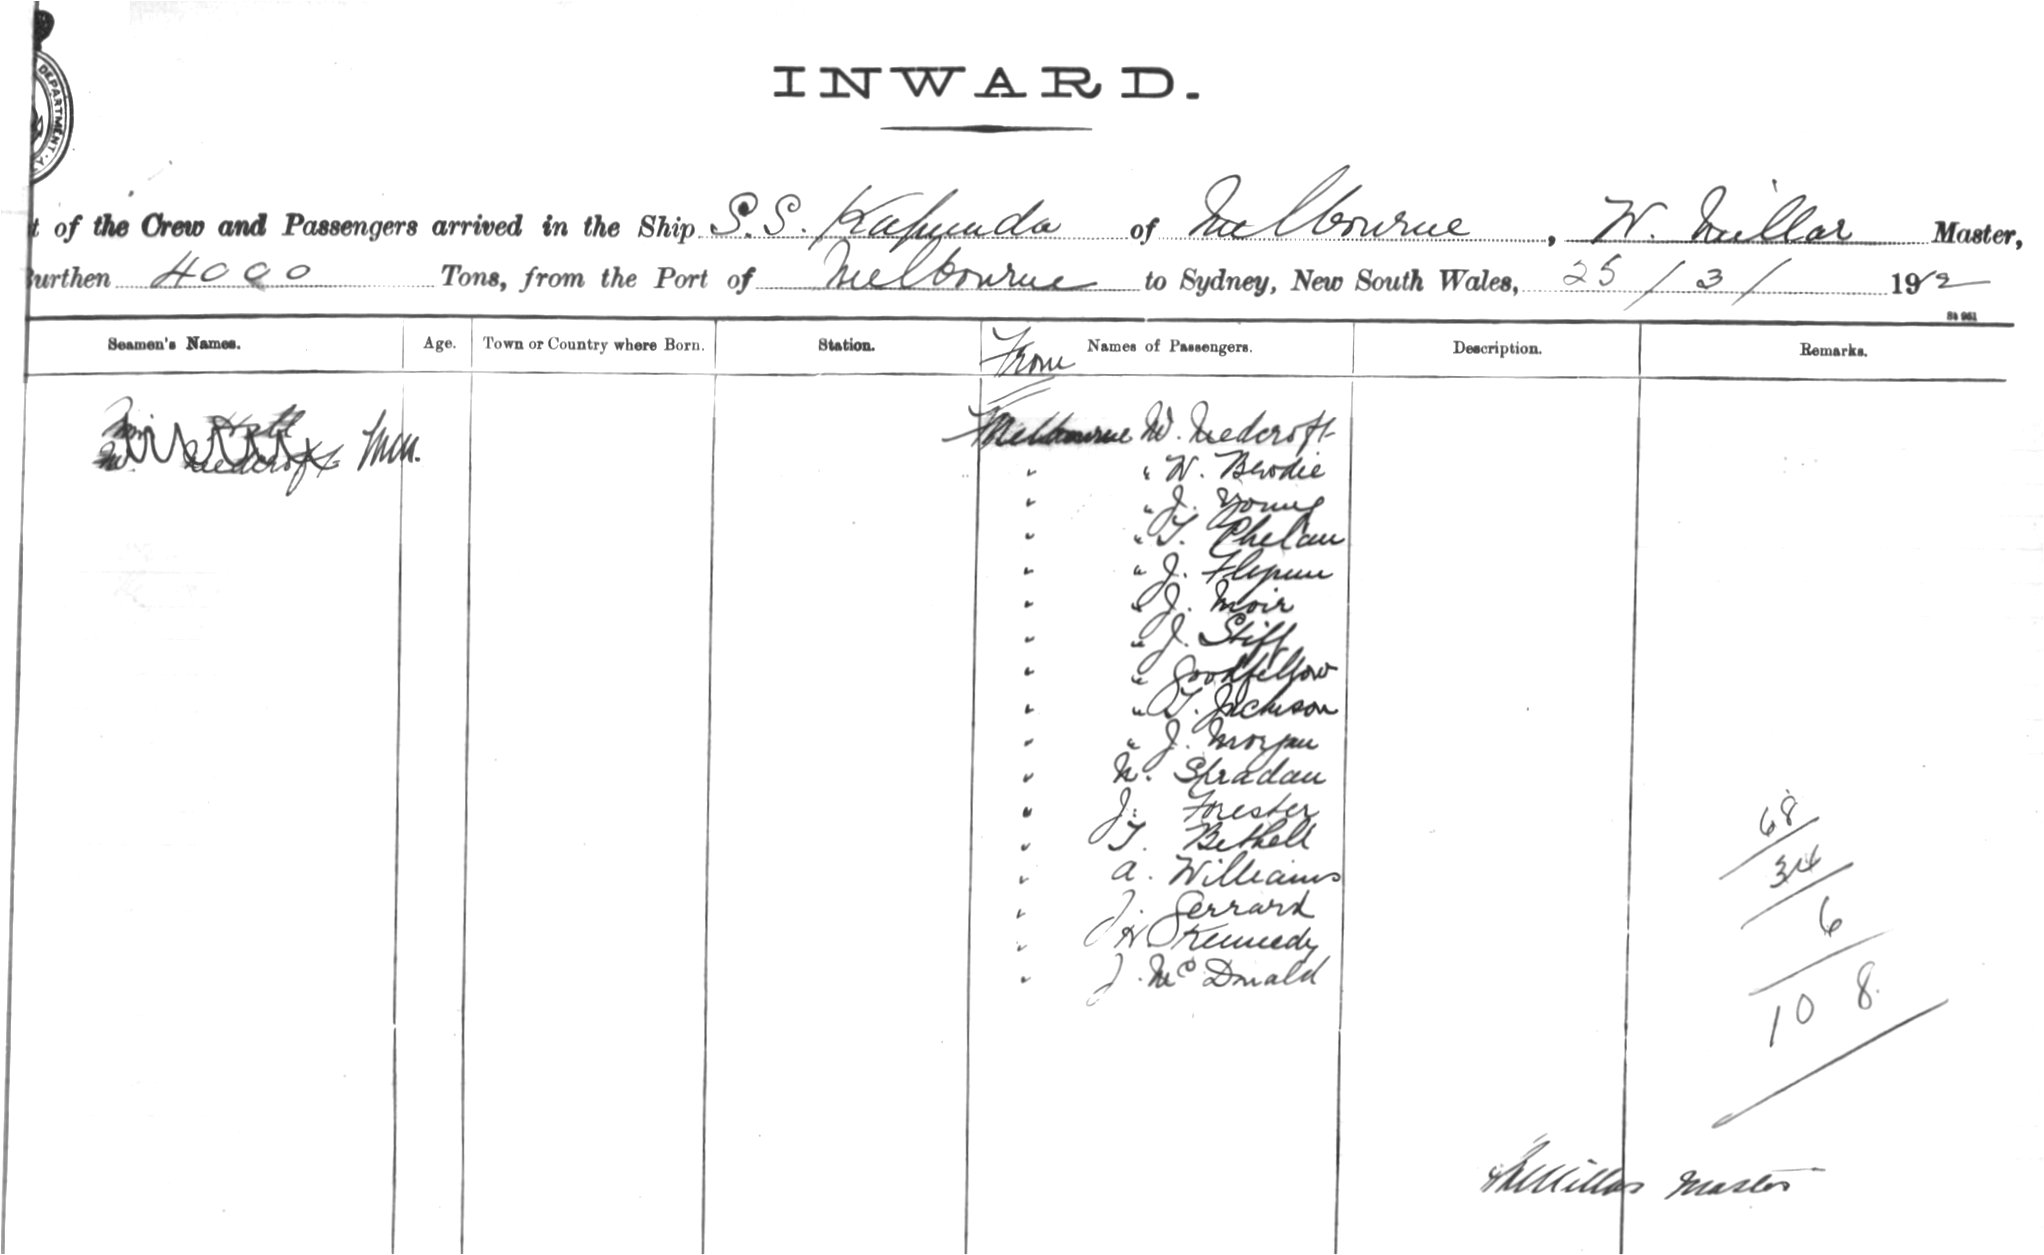 DEPARTMENT · A
INWARD.
t of the Crew and Passengers arrived in the Ship S.S. Kapunda of Melbourne, W. Millar Master,
Burthen 4000 Tons, from the Port of Melbourne to Sydney, New South Wales, 25/3/1912
St 961
Seamen's Names. Age. Town or Country where Born. Station. From Names of Passengers. Description. Remarks.
Melbourne W. Medcroft
" " W. Brodie
" " J. Young
" " T. Phelan
" " J. Flynn
" " J. Moir
" " J. Stiff
" " Goodfellow
" " T. Jackson
" " J. Morgan
" Spradau
" J. Forester
" T. Bethell
" A. Williams
" J. Gerrard
" H. Kennedy
" J. McDonald
68
34
6
108.
WMillar Master